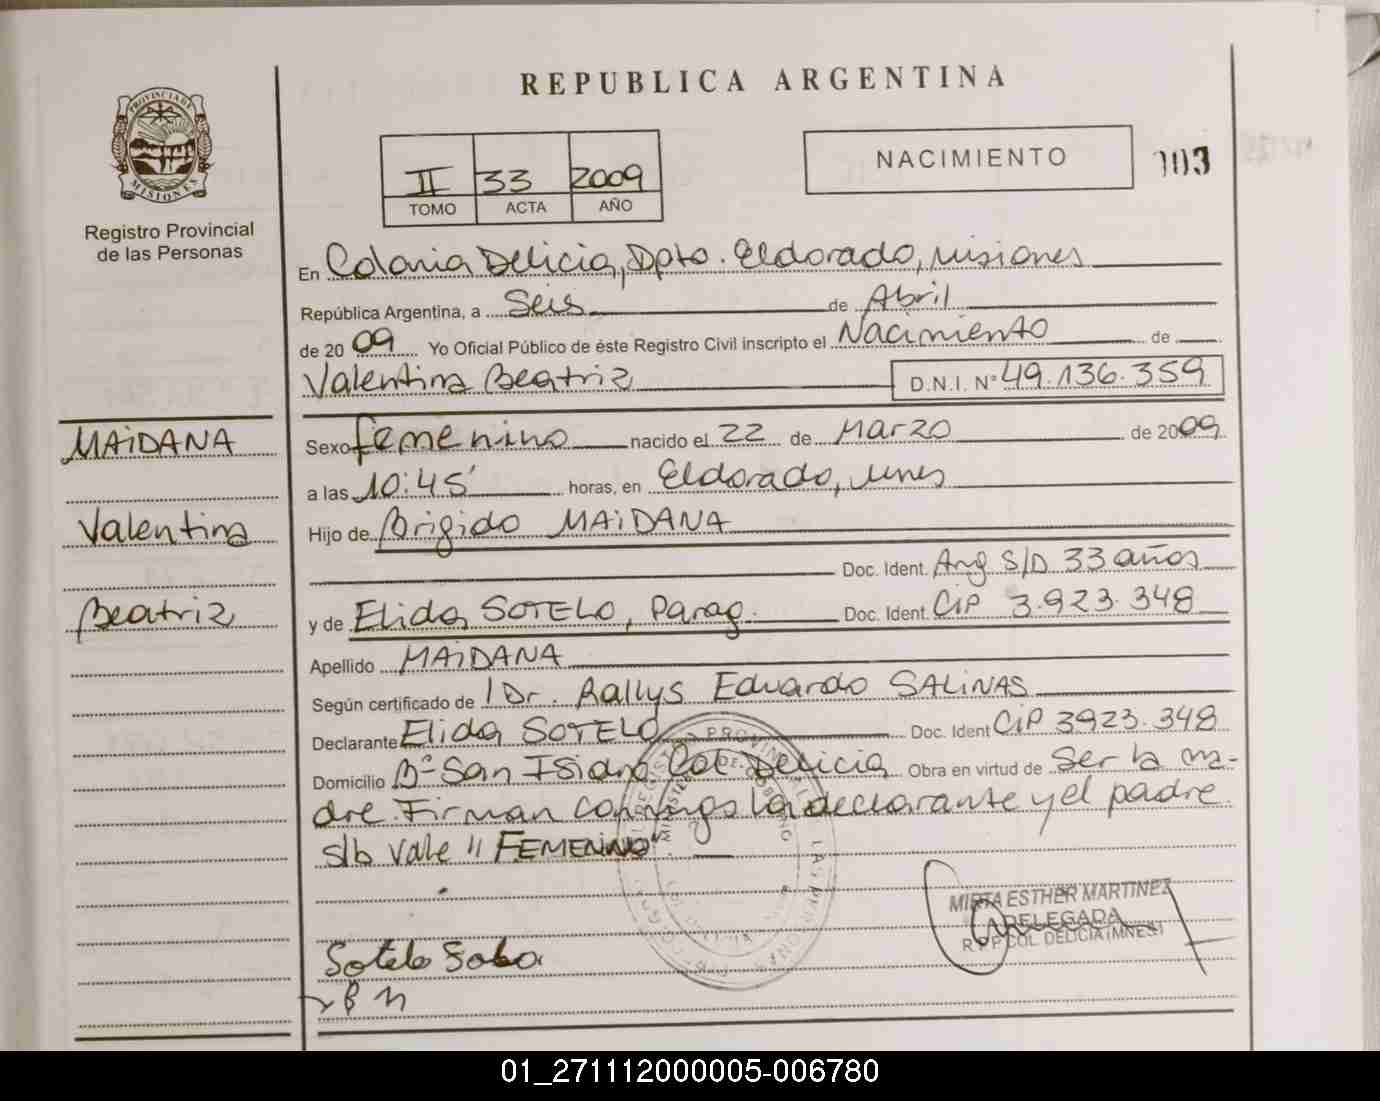 REPUBLICA ARGENTINA
PROVINCIA DE
MISIONES
Registro Provincial
de las Personas
II 33 2009
TOMO ACTA AÑO
NACIMIENTO
103
En Colonia Delicia, Dpto. Eldorado, Misiones
República Argentina, a Seis de Abril
de 2009 Yo Oficial Público de éste Registro Civil inscripto el Nacimiento de
Valentina Beatriz D.N.I. Nº 49.136.359
MAIDANA
Valentina
Beatriz
Sexo femenino nacido el 22 de Marzo de 2009
a las 10:45' horas, en Eldorado, Mnes
Hijo de Brigido MAIDANA
Doc. Ident. Arg S/D 33 años
y de Elida SOTELO, Parag. Doc. Ident. CIP 3.923.348
Apellido MAIDANA
Según certificado de Dr. Rallys Eduardo SALINAS
Declarante Elida SOTELO Doc. Ident CIP 3923.348
Domicilio Bº San Isidro Col Delicia Obra en virtud de Ser la ma-
dre. Firman conmigo la declarante y el padre.
s/b vale "FEMENINO"
MIRTA ESTHER MARTINEZ
DELEGADA
R.P.P. COL. DELICIA (MNES)
Sotelo
01_271112000005-006780